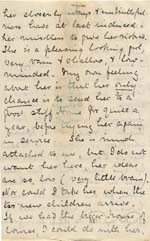 her slovenly ways & untruthful
ness have at last induced
her ministress to give her notice.
She is a pleasing looking girl,
very vain & shallow, & low-
minded. My own feeling
about her is that her only
chance is to send her to a
good stiff Home for quite a
year, before trying her again
in service. She is much
attached to me, but I do not
want her here her ideas
are so low (very little brain).
Nor could I take her when the
two new children arrive.
If we had the bigger House, of
course, I could do with her,